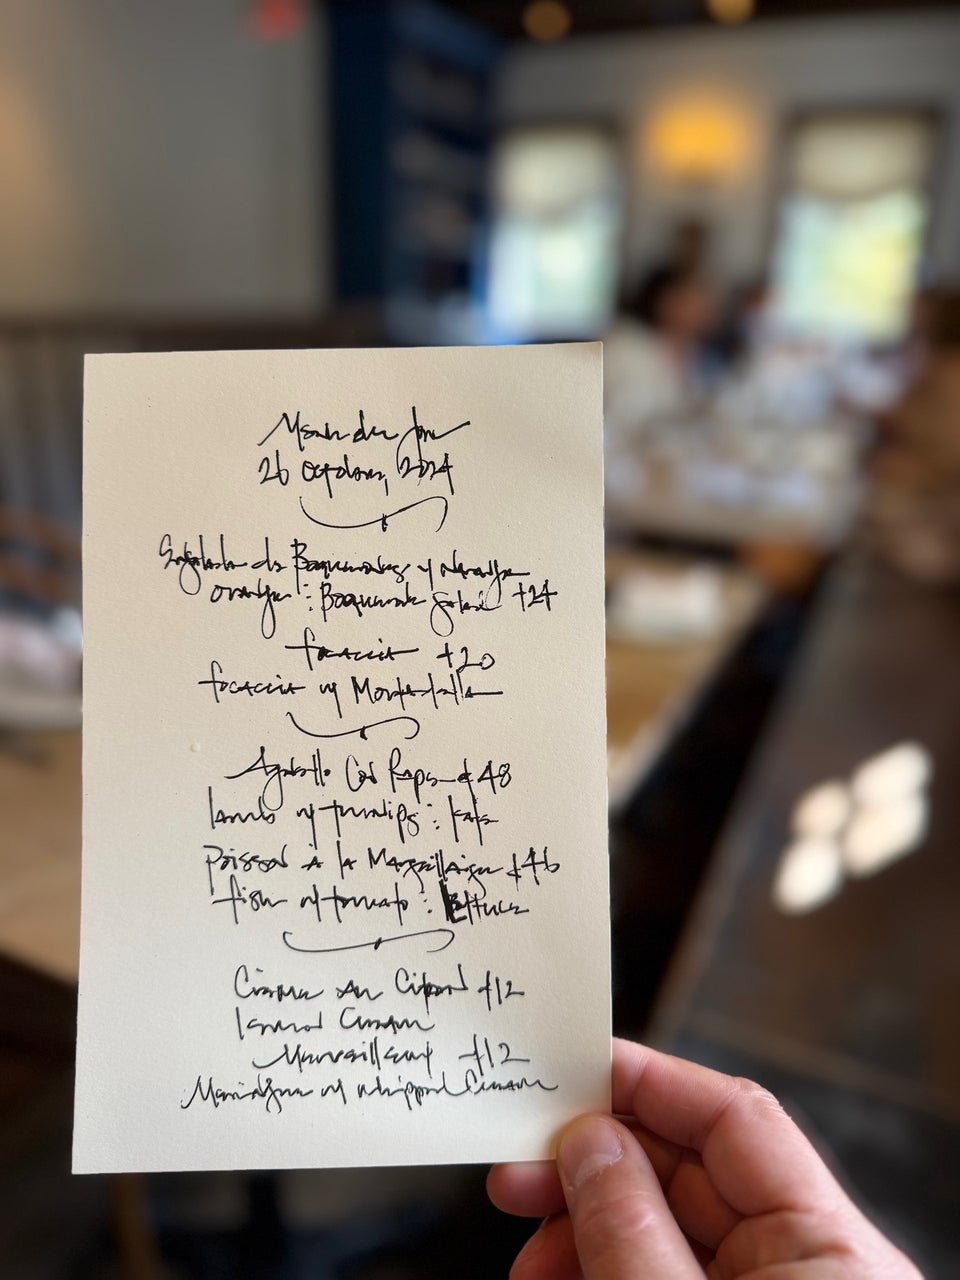 Menu du Jour
26 October, 2024
Ensalada de Boquerones y Naranja
orange : Boquerone Salad +24
focaccia +20
focaccia w/ Mortadella
Agnello Col Raps +48
lamb w/ turnips : kale
Poisson à la Marseillaise +46
fish w/ tomato : lettuce
Crème au Citron +12
lemon Cream
+12
Meringue w/ whipped Cream